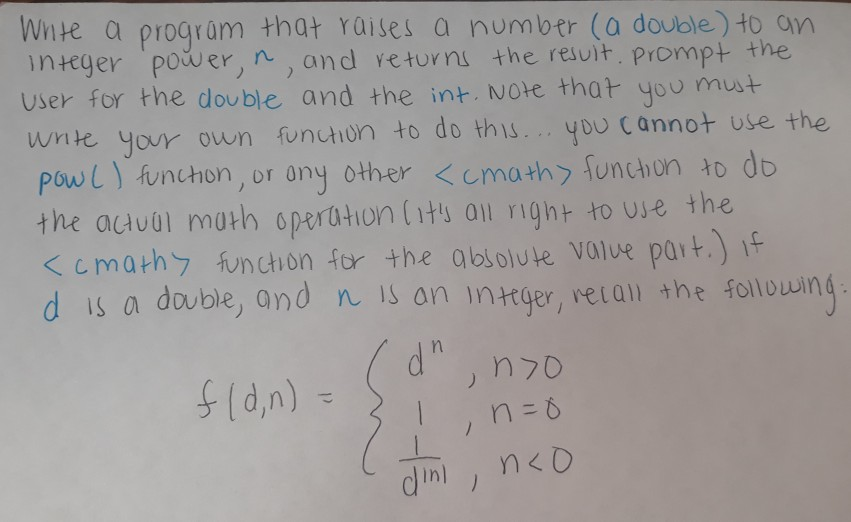 Write a program that raises a number (a double) to an
integer power, n, and returns the result. prompt the
User for the double and the int. Note that you must
write your own function to do this... you cannot use the
pow() function, or any other <cmath> function to do
the actual math operation (it's all right to use the
<cmath> function for the absolute value part.) if
d is a double, and n is an integer, recall the following:
f(d,n) = { d^n , n>0
1 , n=0
1/d^|n| , n<0